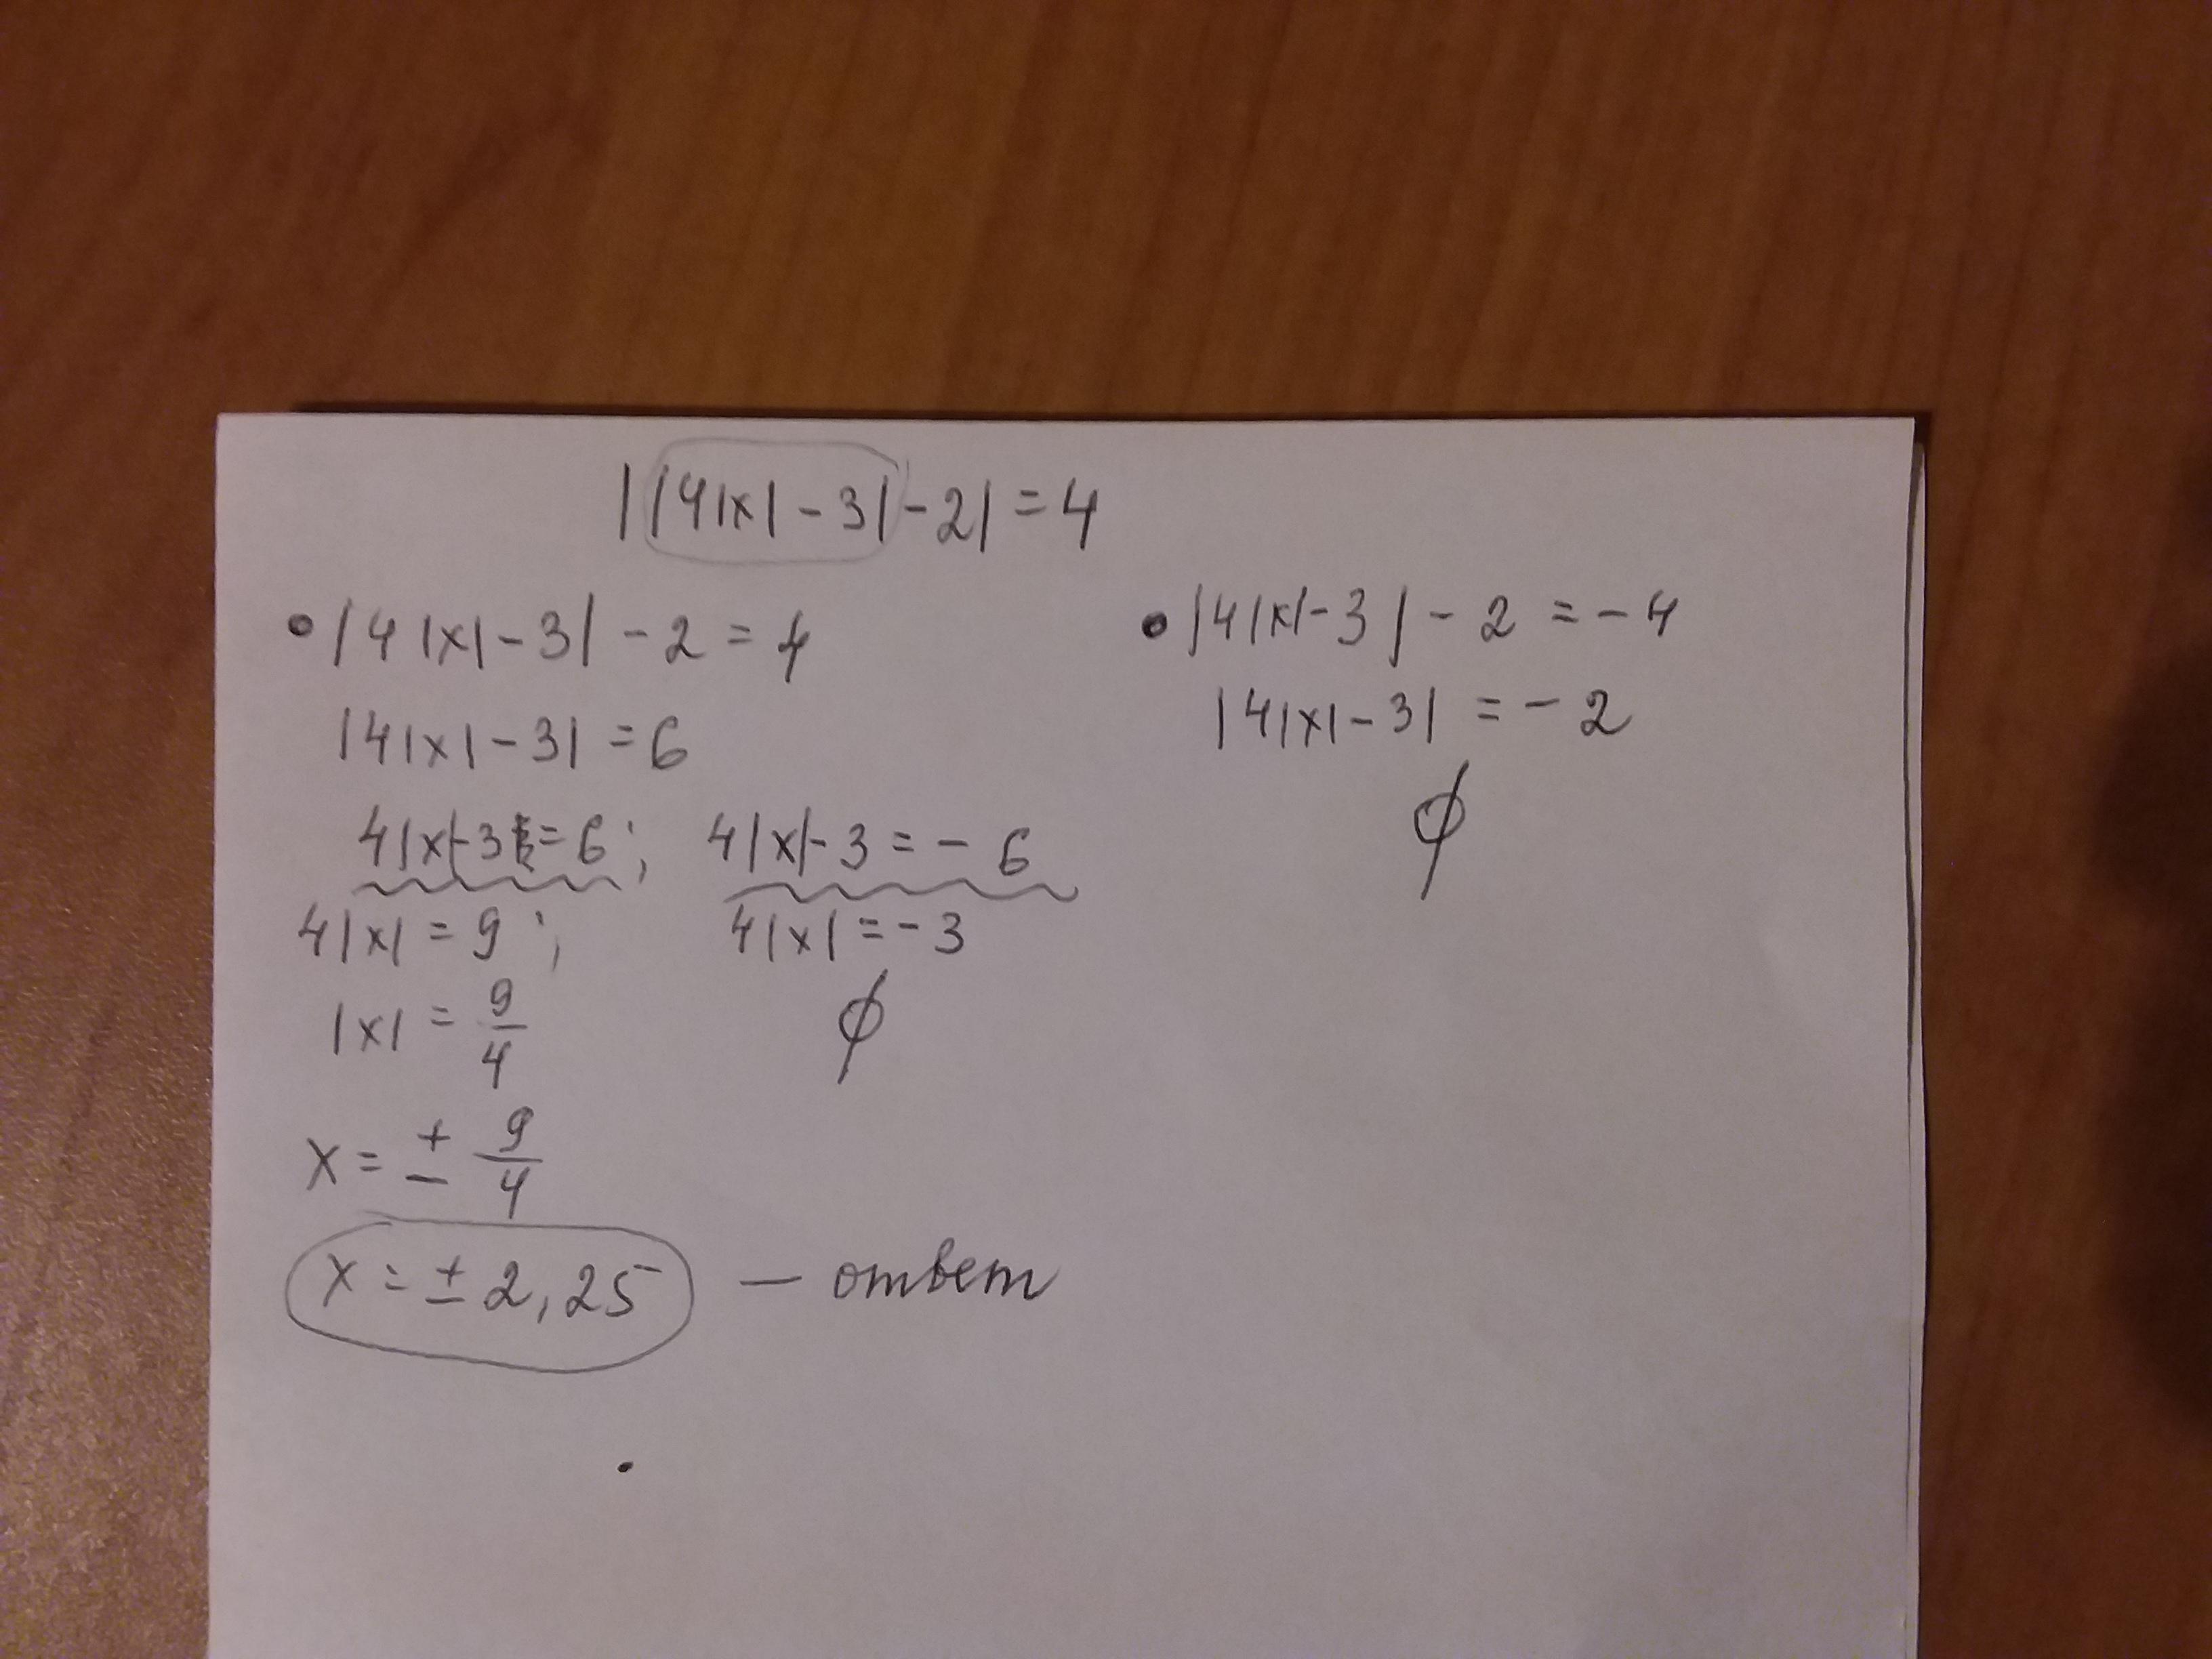 ||4|x|-3|-2|=4
• |4|x|-3|-2=4
|4|x|-3|=6
4|x|-3=6; 4|x|-3=-6
4|x|=9; 4|x|=-3
|x|=9/4 ∅
x=± 9/4
x=±2,25 — ответ
• |4|x|-3|-2=-4
|4|x|-3|=-2
∅